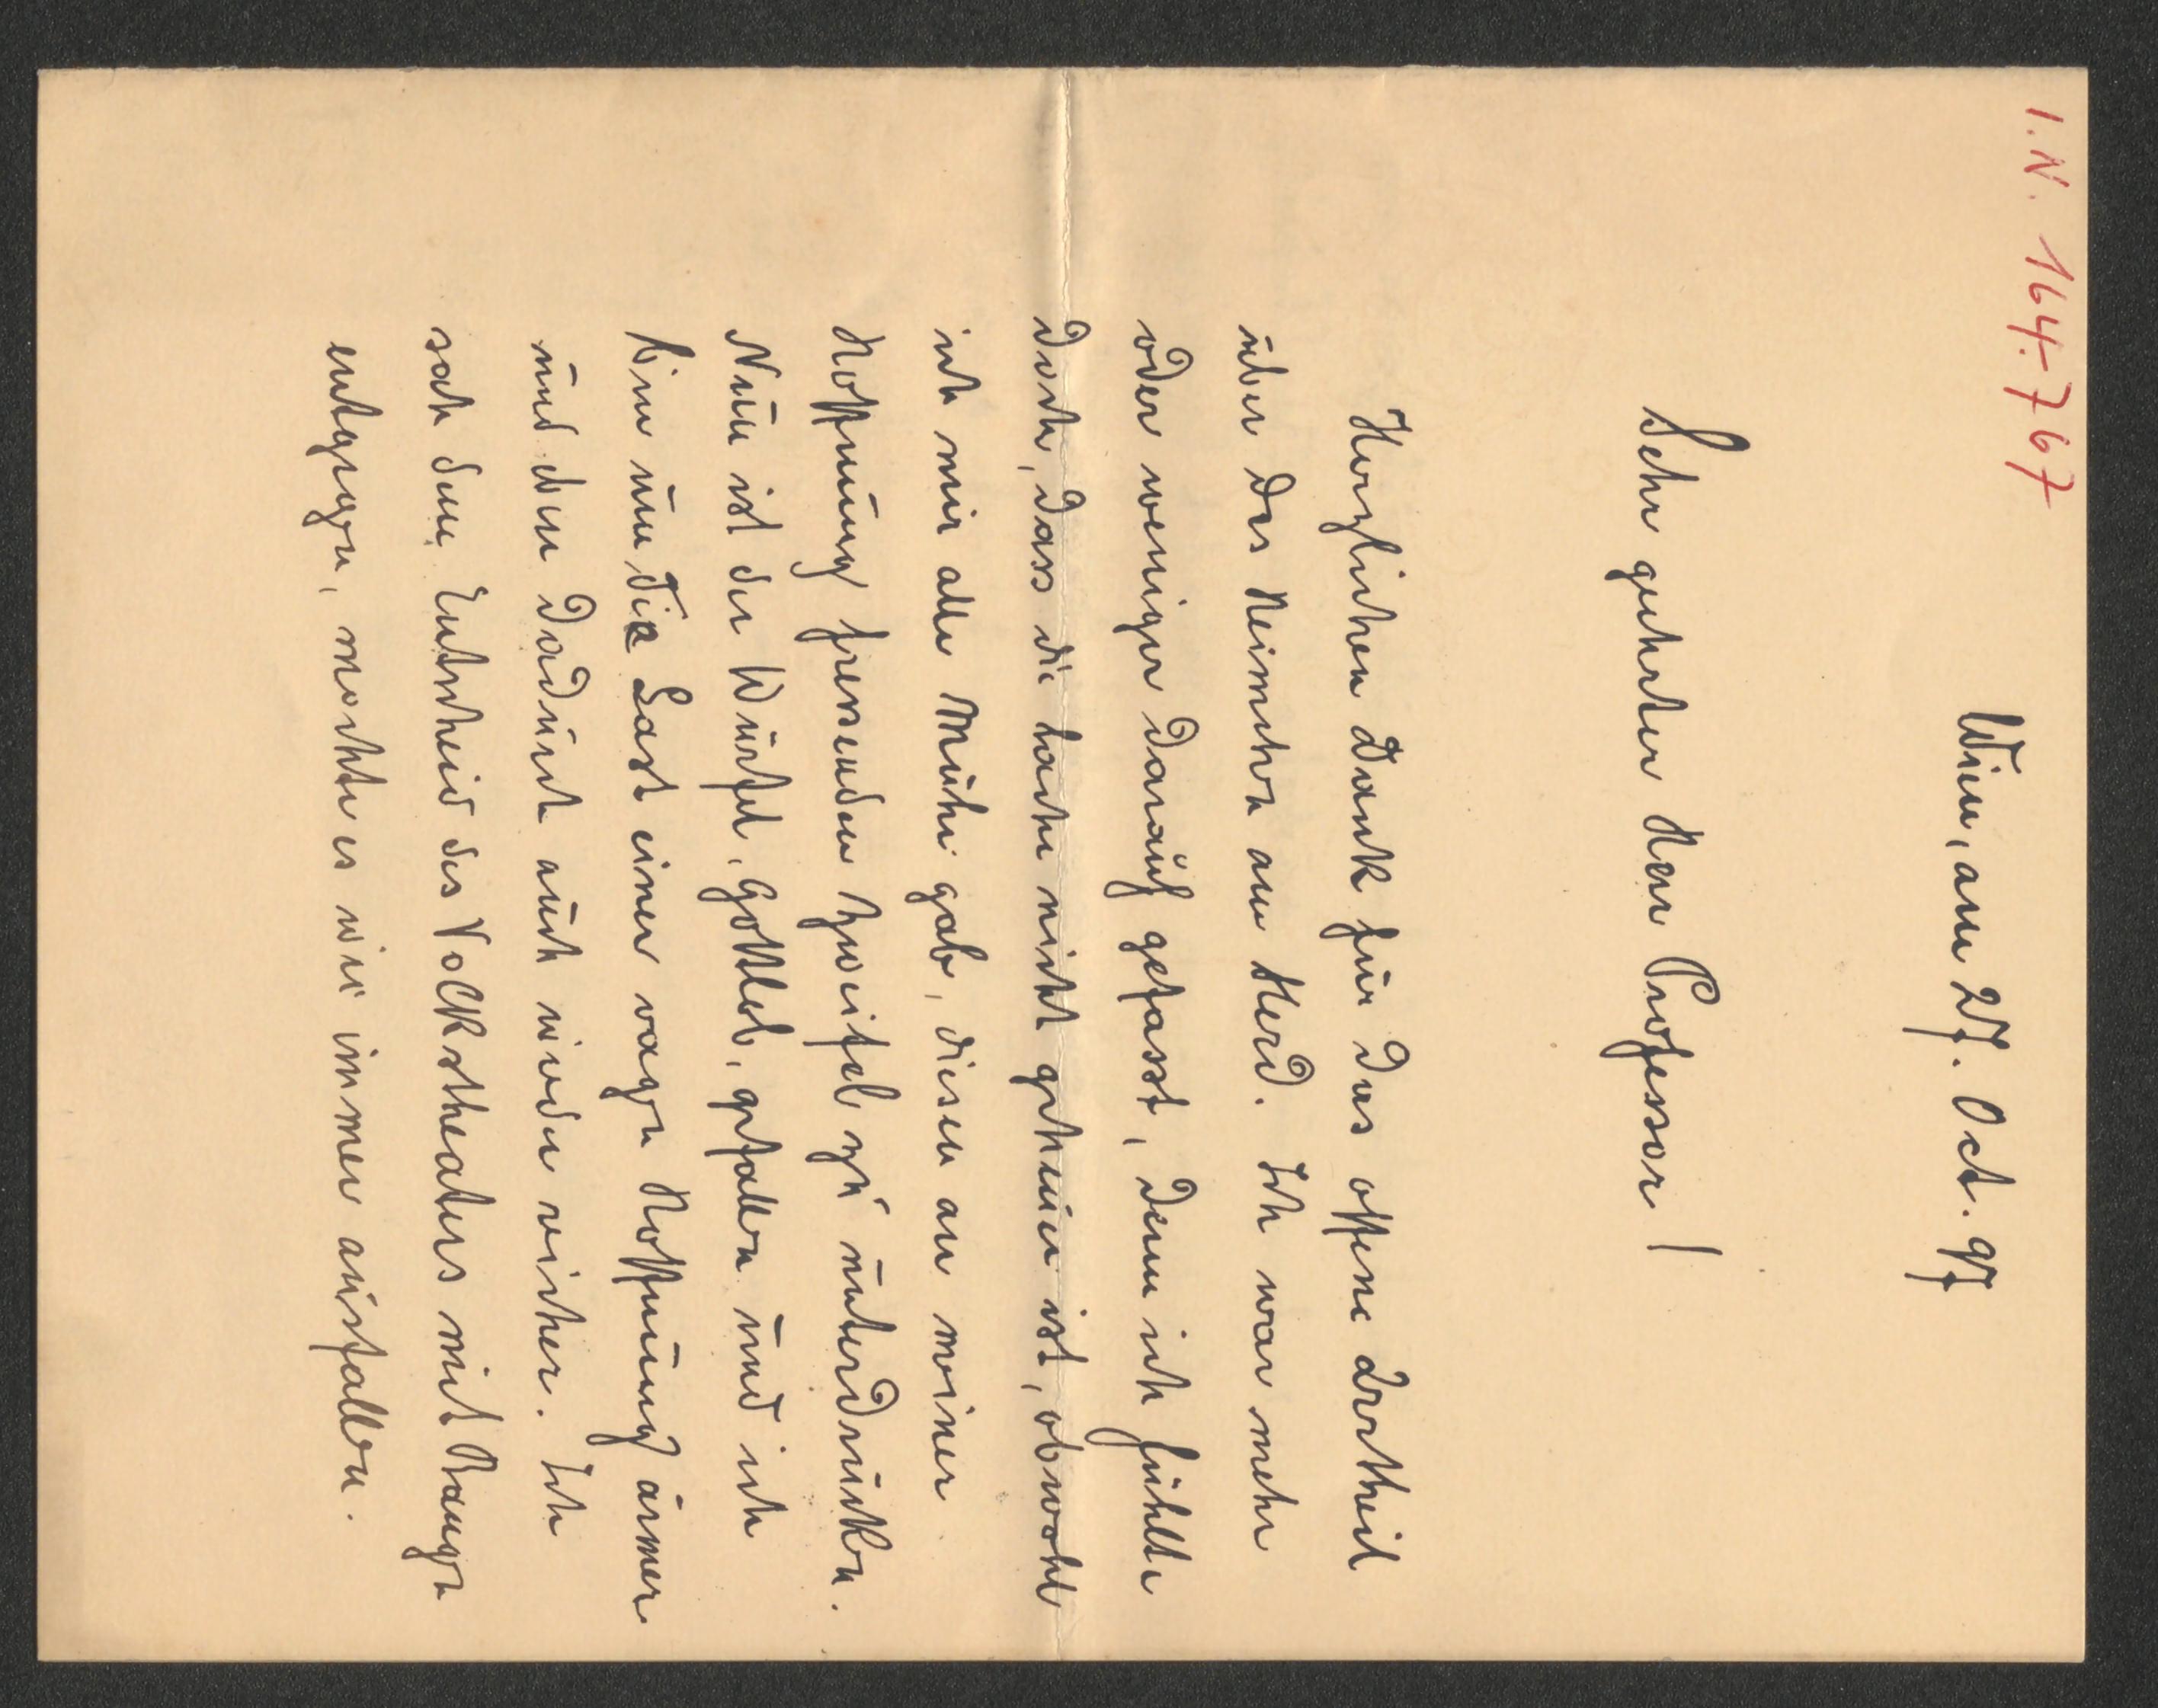 I.N. 164.767
Wien, am 27. Oct. 97
Sehr geehrter Herr Professor!
Herzlichen Dank für das offene Urtheil
über das Heimchen am Herd. Ich war mehr
oder weniger darauf gefasst, denn ich fühlte
doch, dass die Sache nicht geheuer ist, obwohl
ich mir alle Mühe gab, diesen an meiner
Hoffnung fressenden Zweifel zu unterdrücken.
Nun ist der Würfel, Gottlob, gefallen und ich
bin um die Last einer vagen Hoffnung ärmer
und eben dadurch auch wieder reicher. Ich
sah dem Entscheid des Volkstheaters mit Bangen
entgegen, mochte es wie immer ausfallen.